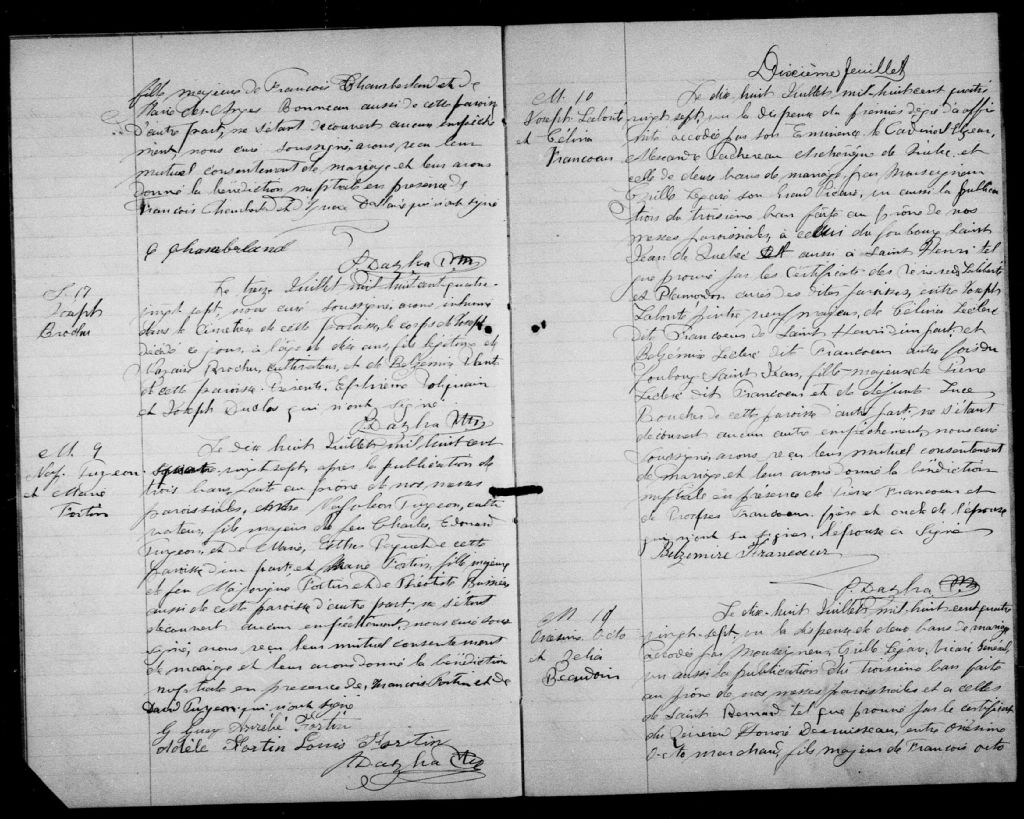 fille majeure de François Chamberland et de
Marie des Anges Bonneau aussi de cette paroisse
d'autre part, ne s'étant découvert aucun empêche
ment, nous curé soussigné, avons reçu leur
mutuel consentement de mariage et leur avons
donné la bénédiction nuptiale en présence de
François Chamberland et qui n'ont signé
C Chamberland
S. 17
Joseph
Brochu
Le treize Juillet mil huit cent quatre-
vingt sept, nous curé soussigné, avons inhumé
dans le Cimetière de cette paroisse, le corps de Joseph
décédé ce jour, à l'âge de dix ans, fils légitime de
Nazaire Brochu, cultivateur, et de
de cette paroisse. Présents,
et Joseph Duclos qui n'ont signé
M 9
Nap. Turgeon
et Marie
Fortin
Le dix huit Juillet mil huit cent
quatre vingt sept, après la publication de
trois bans faite au prône de nos messes
paroissiales, entre Napoléon Turgeon, culti
vateur, fils majeur de feu Charles, Edouard
Turgeon, et de Marie, Esther Paquet de cette
paroisse d'un part, et Marie Fortin, fille majeure
de feu Fortin et de Théotiste
aussi de cette paroisse d'autre part, ne s'étant
découvert aucun empêchement, nous curé sous
signé, avons reçu leur mutuel consentement
de mariage et leur avons donné la bénédiction
nuptiale en présence de François Fortin et de
David Turgeon qui n'ont signé
G Guay Aurélie Fortin
Adèle Fortin Louis Fortin
Dixième feuillet
M 10
Joseph Labonté
et Célina
Francoeur
Le dix-huit Juillet mil huit cent quatre
vingt sept, vu la dispense du premier degré d'affi
nité accordée par son Eminence le Cardinal Elzéar,
Alexandre Taschereau Archevêque de Québec, et
celle de deux bans de mariage, par Monseigneur
Cyrille Légaré son Grand Vicaire, vu aussi la publica
tion du troisième ban faite au prône de nos
messes paroissiales, à celui du faubourg Saint
Jean de Québec et aussi à Saint Henri tel
que prouvé par les certificats des Révérends
et Plamondon curés des dites paroisses, entre Joseph
Labonté peintre, veuf majeur, de Célina Leclerc
dit Francoeur de Saint Henri d'un part, et
Leclerc dit Francoeur autre fois du
Faubourg Saint Jean, fille majeure de Pierre
Leclerc dit Francoeur et de défunte Luce
Boucher de cette paroisse d'autre part, ne s'étant
découvert aucun autre empêchement, nous curé
soussigné, avons reçu leur mutuel consentement
de mariage et leur avons donné la bénédiction
nuptiale en présence de Pierre Francoeur et
de Francoeur frère et oncle de l'épouse
qui n'ont su signer, l'épouse a signé
Belzemire Francoeur
Onésime Octo
et Zélia
Beaudoin
Le dix-huit Juillet mil huit cent quatre
vingt sept, vu la dispense de deux bans de mariage
accordée par Monseigneur Cyrille Légaré, Vicaire Général
vu aussi la publication du troisième ban faite
au prône de nos messes paroissiales et à celles
de Saint Bernard tel que prouvé par le certificat
du Révérend Honoré Desruisseaux, entre Onésime
Octo marchand, fils majeur de François Octo